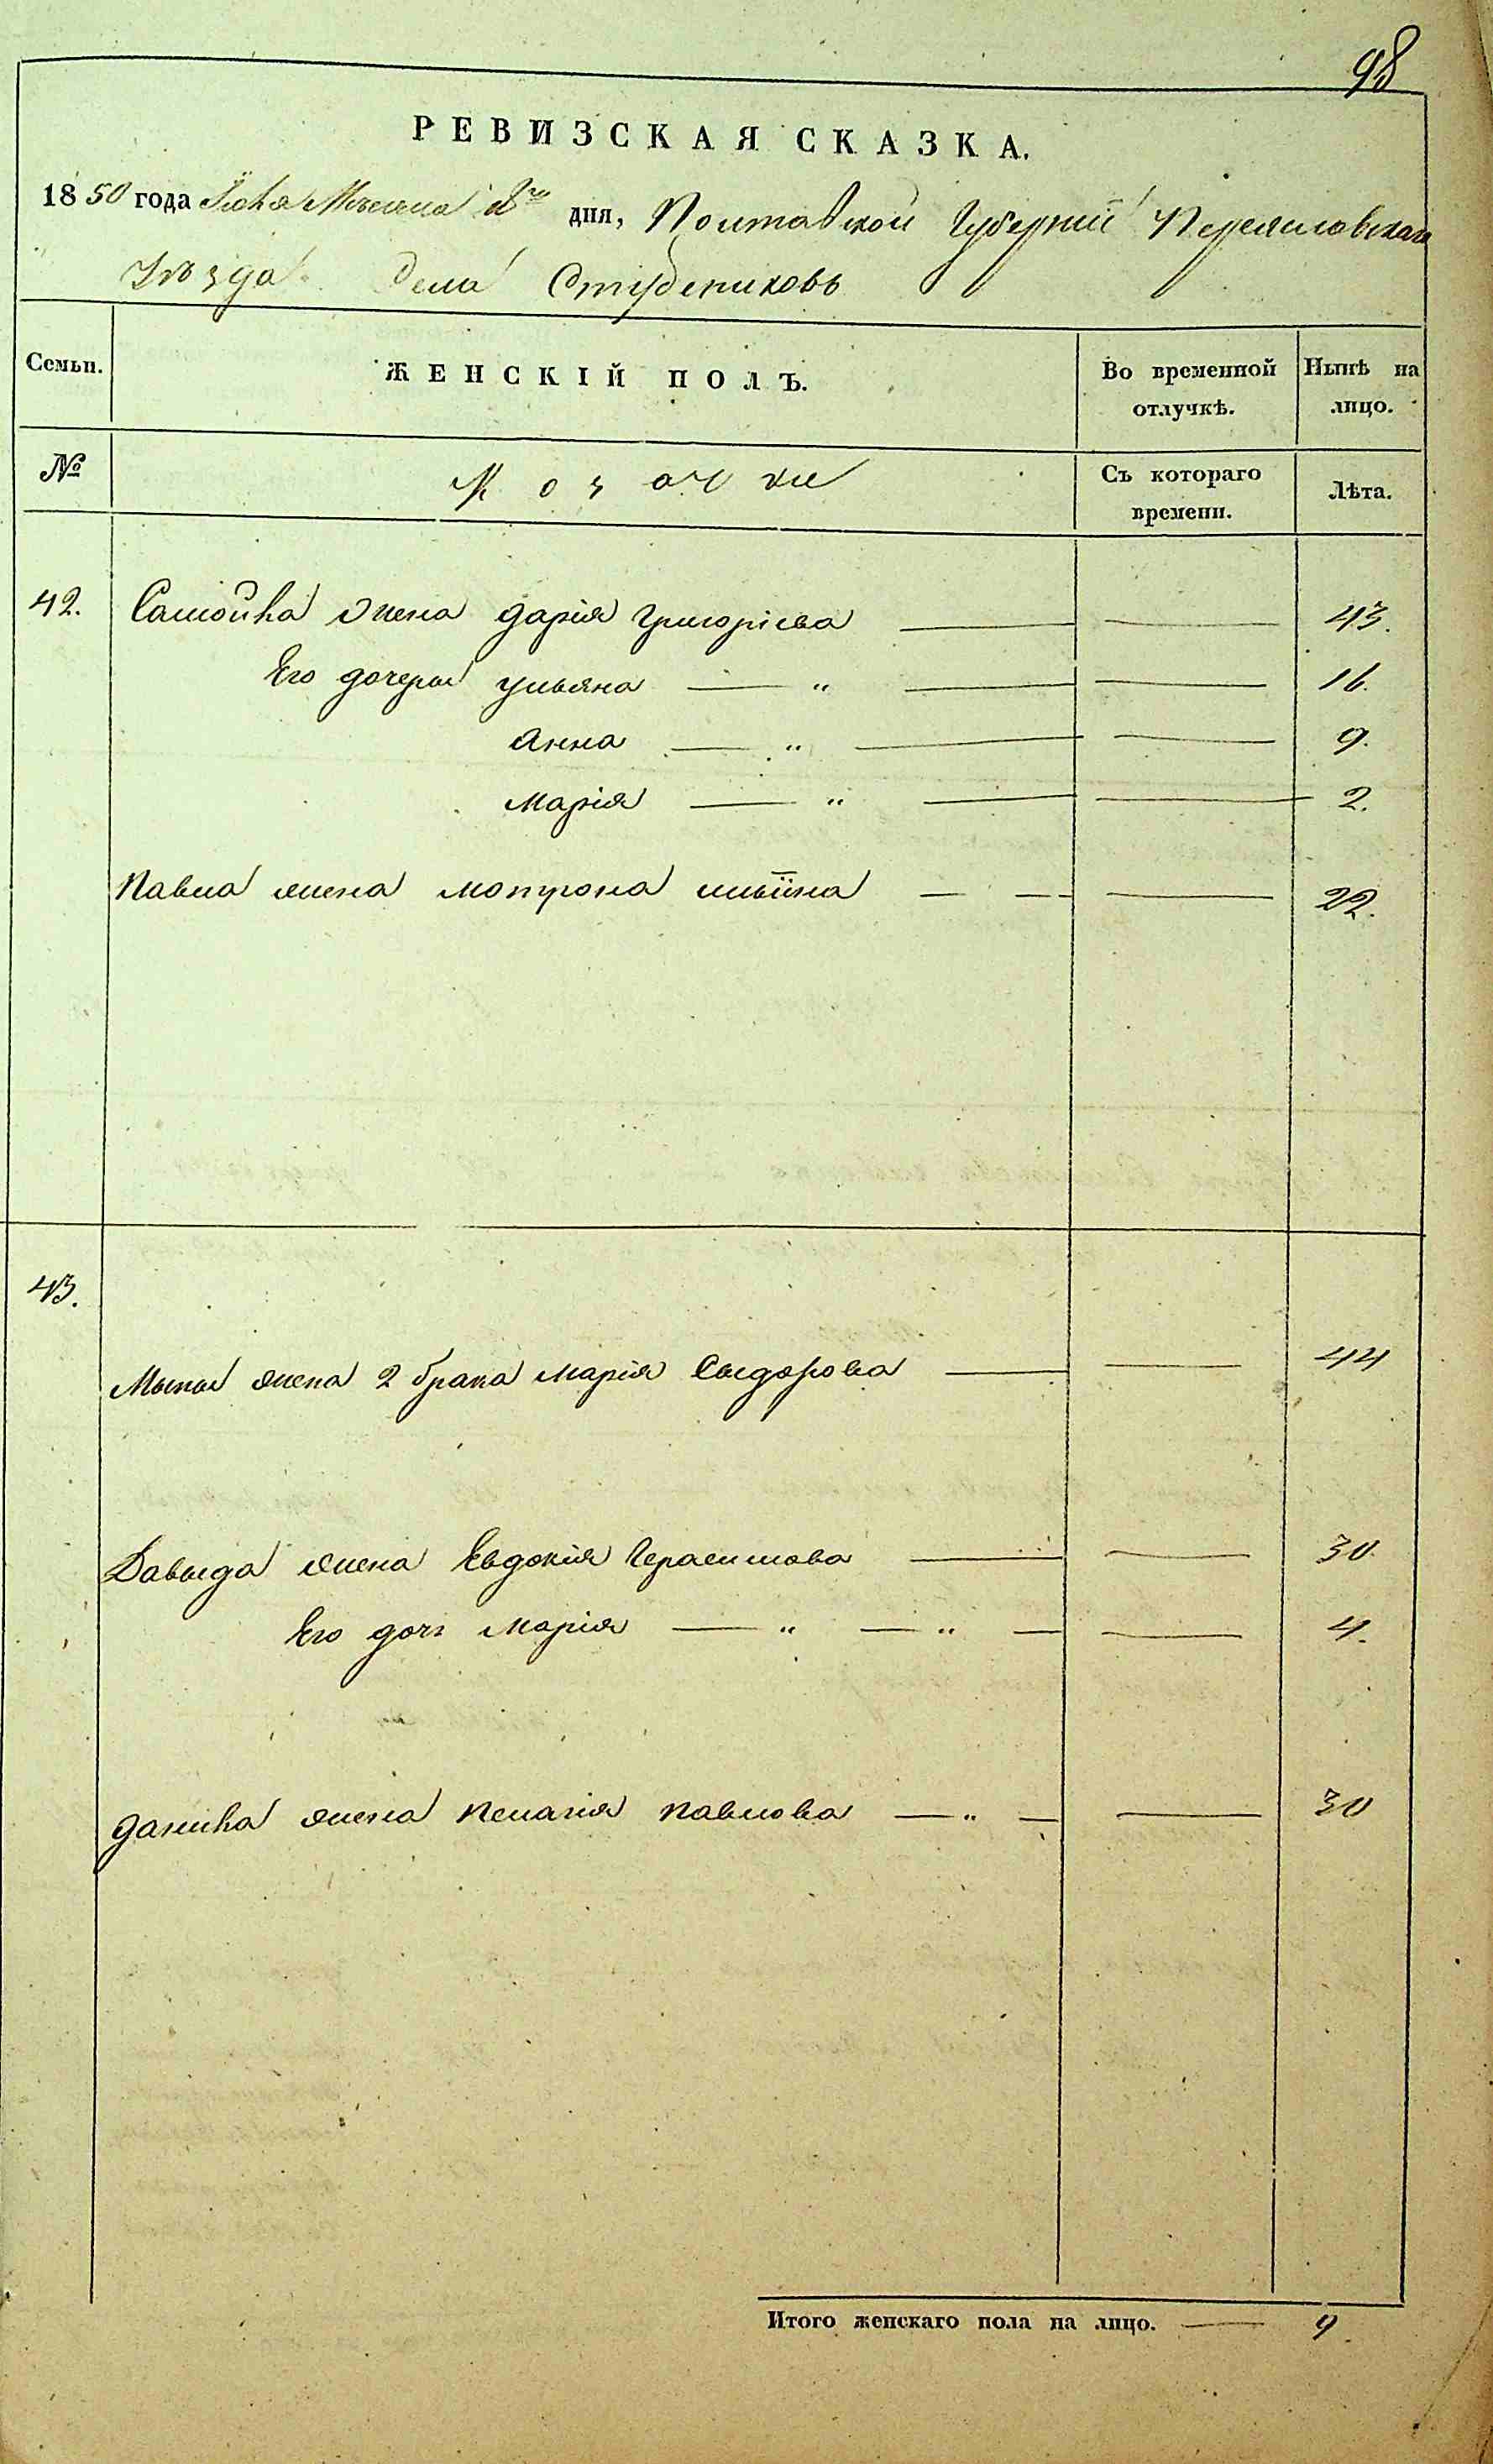 98
РЕВИЗСКАЯ СКАЗКА.
1850 года Июля Месяца дня, Полтавской Губернии Переяславскаго
Уѣзда Села Студениковъ
Семьи. ЖЕНСКІЙ ПОЛЪ. Во временной отлучкѣ. Нынѣ на лицо.
№ Козачки Съ котораго времени. Лѣта.
42. Самойла жена дарія григоріева — — 43.
Его дочеры ульяна — „ — — 16.
Анна — „ — — 9.
Марія — „ — — 2.
Павла жена мотрона ильіина — — — 22.
43.
Мыны жена 2 брака марія Сыдорова — — 44
Давыда жена Евдокія Герасимова — — 30.
Его дочь Марія — „ — „ — — 4.
данила жена пелагія павлова — „ — — 30
Итого женскаго пола на лицо. — 9.